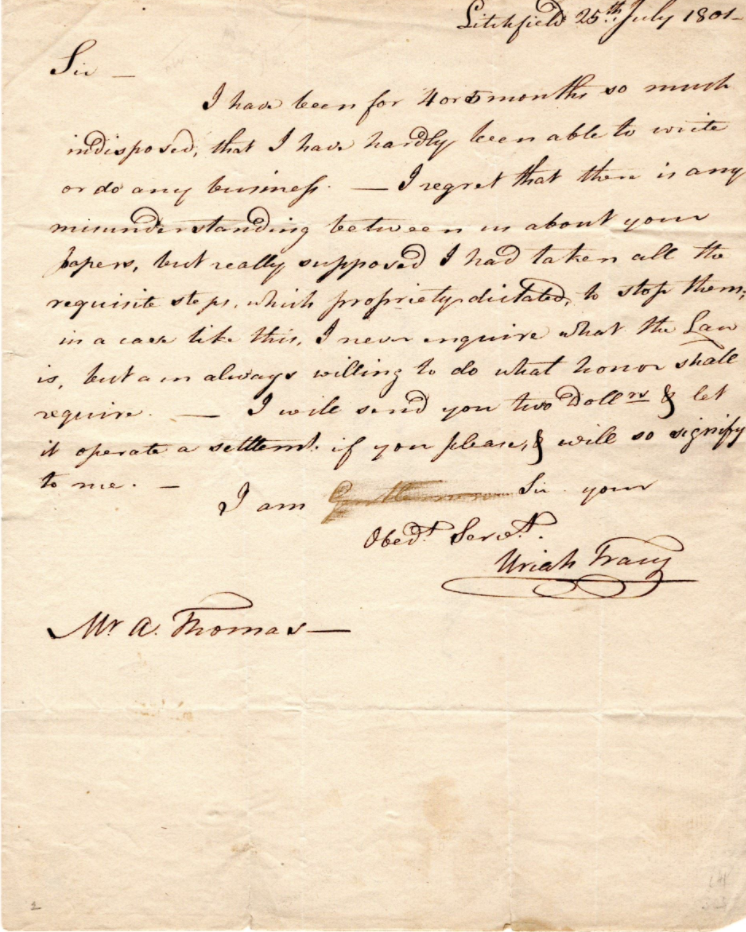 Litchfield 25th July 1801-
Sir —
I have been for 4 or 5 months so much
indisposed, that I have hardly been able to write
or do any business. — I regret that there is any
misunderstanding between us about your
papers, but really supposed I had taken all the
requisite steps, which propriety dictated, to stop them;
in a case like this, I never enquire what the Law
is, but am always willing to do what honor shall
require. — I will send you two Dollrs & let
it operate a settlemt. if you please, & will so signify
to me. —
I am Sir your
Obedt. Servt.
Uriah Tracy
Mr A. Thomas —
2